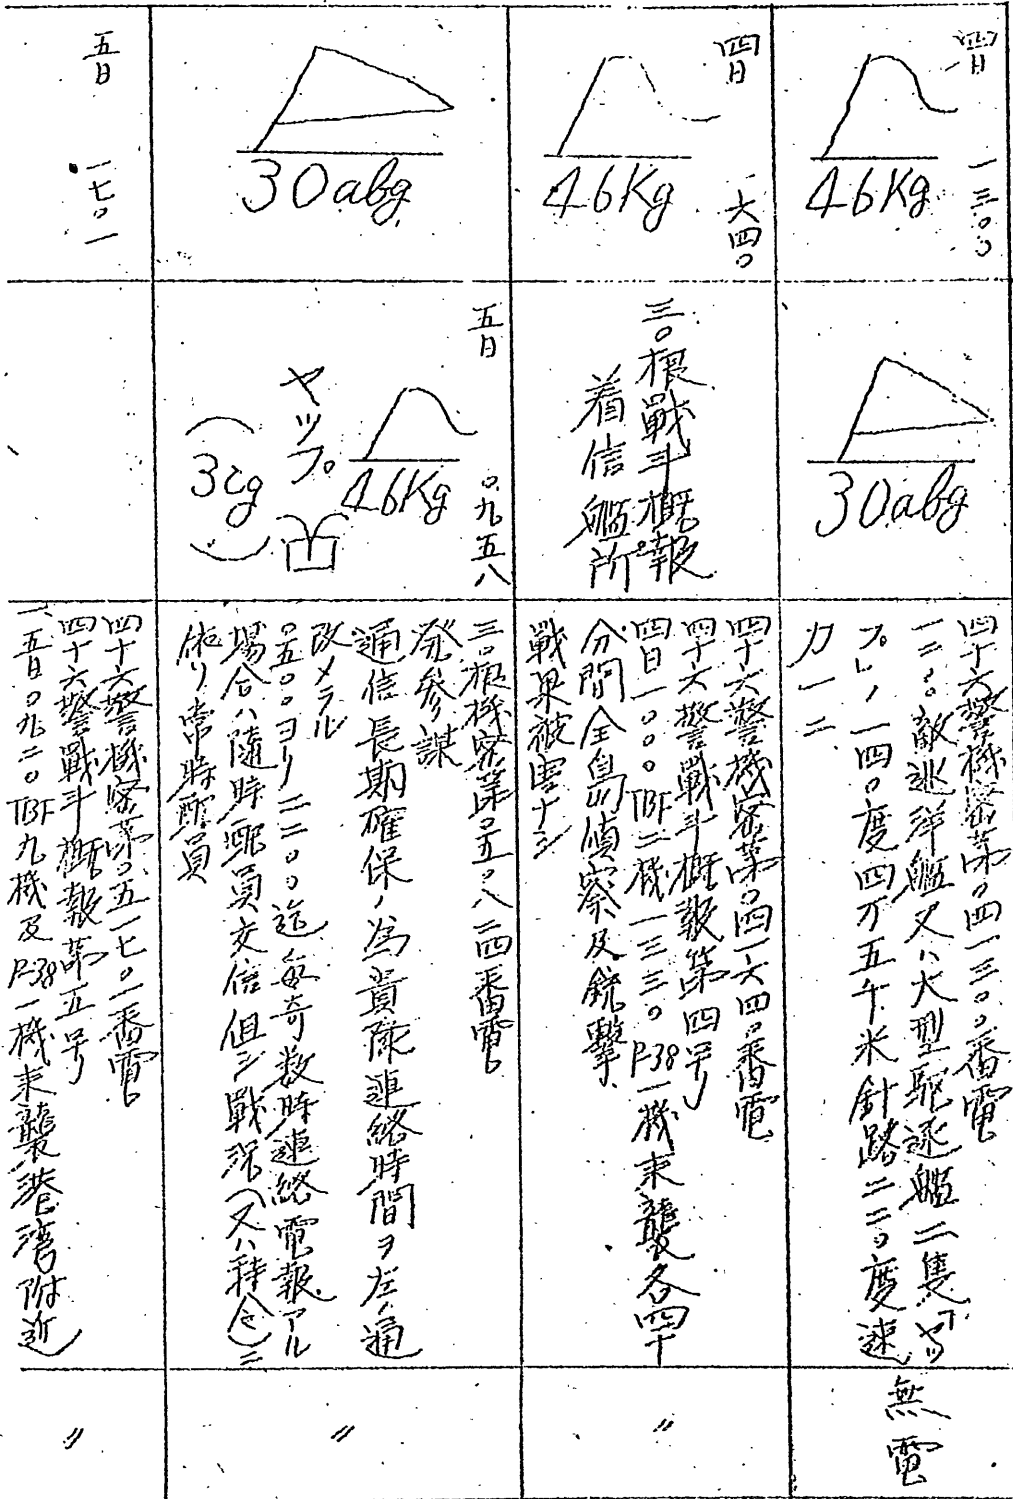 四日
一三〇〇
46Kg
30abg
四十六警機密第〇四一三〇〇番電
一二〇〇敵巡洋艦又ハ大型駆逐艦二隻「ヤッ
プ」ノ一四〇度四万五千米針路二二〇度速
力一二
無電
四日
一六四〇
46Kg
三〇根戦斗概報
着信艦所
四十六警機密第〇四一六四〇番電
四十六警戦斗概報第四号
四日一〇〇〇TBF二機一三三〇P-38一機来襲各四十
分間全島偵察及銃撃
戦果被害ナシ
〃
30abg
五日
〇九五八
46Kg
ヤップ
(32g)
三〇根機密第〇五〇八二四番電
発参謀
通信長期確保ノ為貴隊連絡時間ヲ左ノ通
改メラル
〇五〇〇ヨリ二二〇〇迄毎奇数時連絡電報アル
場合ハ随時配員交信但シ戦況(又ハ特令)ニ
依リ常時配員
〃
五日
一七〇一
四十六警機密第〇五一七〇一番電
四十六警戦斗概報第五号
一、五日〇九二〇TBF九機及P-38一機来襲港湾附近
〃